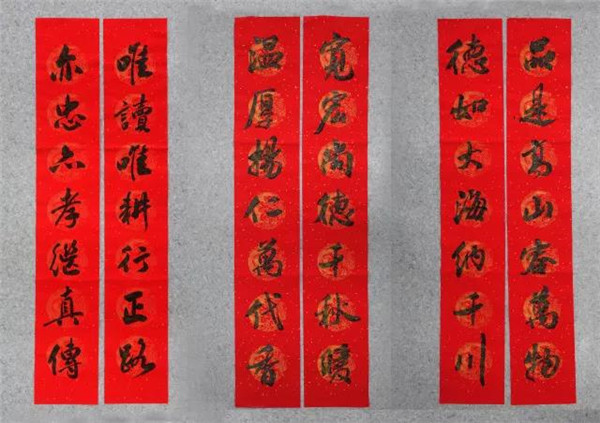 品是高山容萬物
德如大海納千川
寬宏尚德千秋暖
温厚揚仁萬代香
唯讀唯耕行正路
亦忠亦孝繼真傳